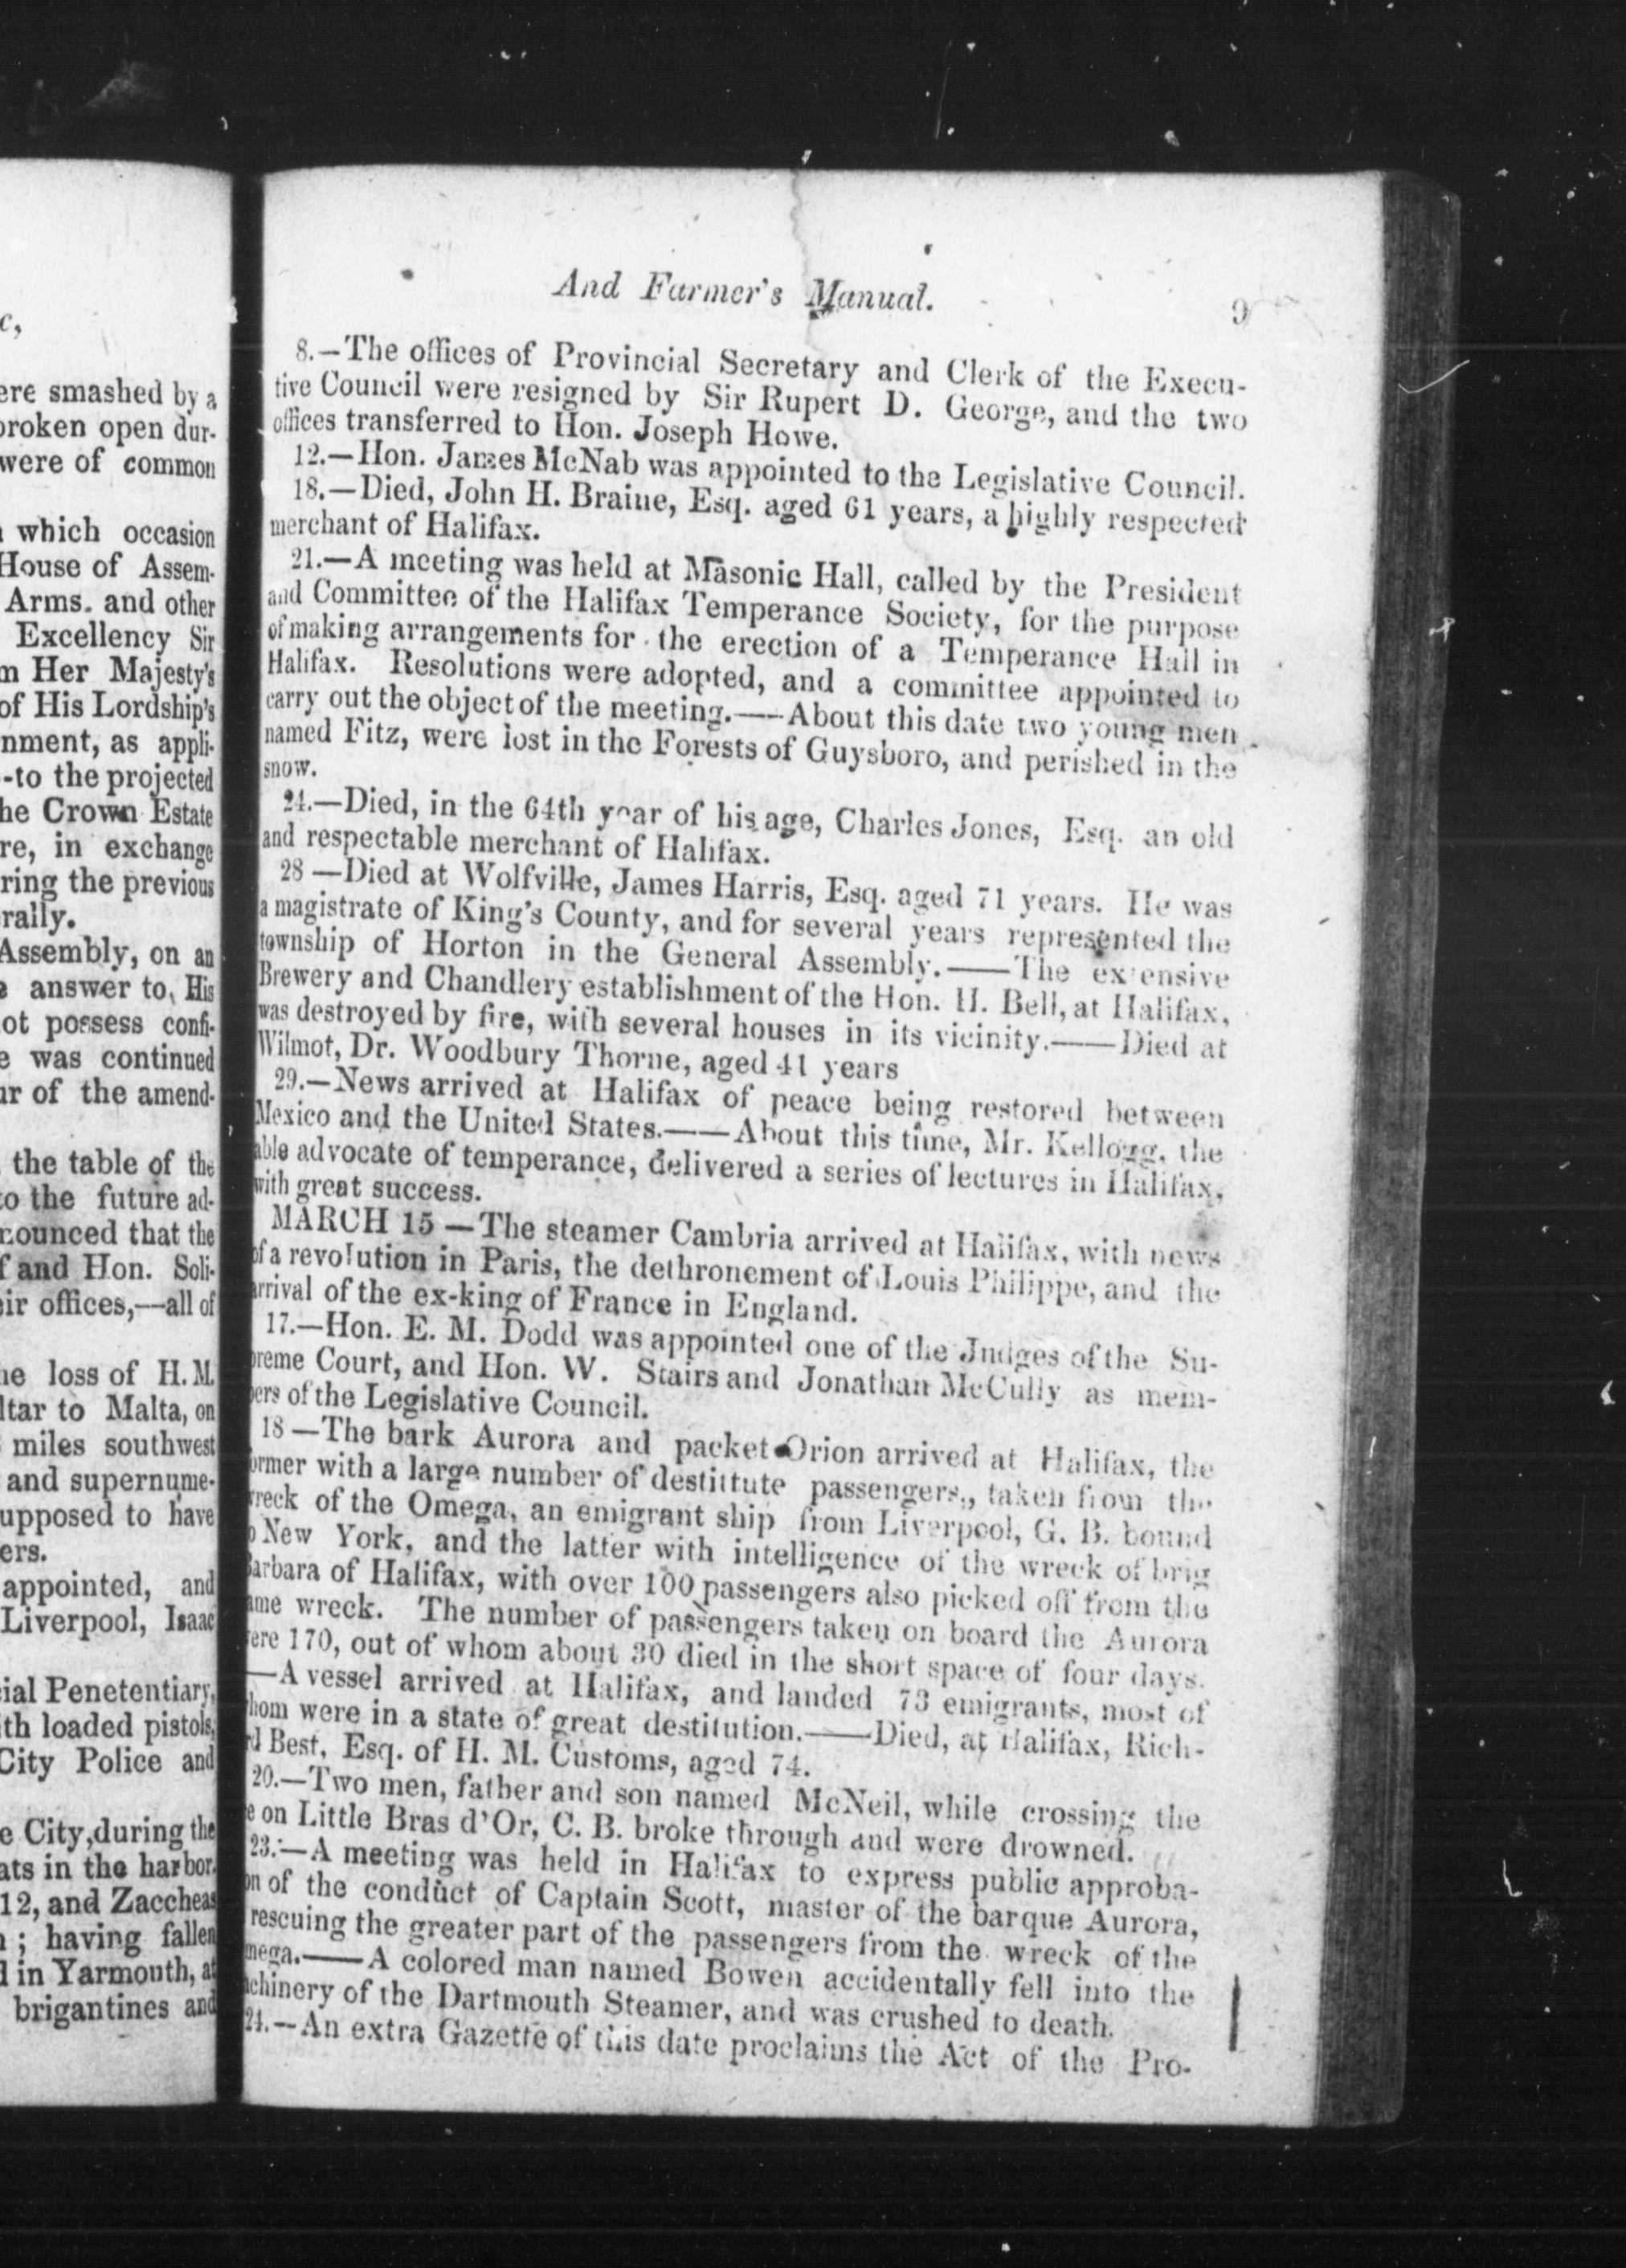 c,
ere smashed by a
broken open dur-
were of common
which occasion
House of Assem-
Arms. and other
Excellency Sir
m Her Majesty's
of His Lordship's
nment, as appli-
-to the projected
he Crown Estate
re, in exchange
ring the previous
rally.
Assembly, on an
answer to, His
ot possess confi-
e was continued
ur of the amend-
the table of the
to the future ad-
nounced that the
f and Hon. Soli-
eir offices,—all of
he loss of H. M.
ltar to Malta, on
miles southwest
and supernume-
upposed to have
ers.
appointed, and
Liverpool, Isaac
cial Penetentiary,
ith loaded pistols,
City Police and
e City,during the
ats in the harbor.
12, and Zaccheas
; having fallen
d in Yarmouth, at
brigantines and
And Farmer's Manual. 9
8.—The offices of Provincial Secretary and Clerk of the Execu-
tive Council were resigned by Sir Rupert D. George, and the two
offices transferred to Hon. Joseph Howe.
12.—Hon. James McNab was appointed to the Legislative Council.
18.—Died, John H. Braine, Esq. aged 61 years, a highly respected
merchant of Halifax.
21.—A meeting was held at Masonic Hall, called by the President
and Committee of the Halifax Temperance Society, for the purpose
of making arrangements for the erection of a Temperance Hall in
Halifax. Resolutions were adopted, and a committee appointed to
carry out the object of the meeting.——About this date two young men
named Fitz, were lost in the Forests of Guysboro, and perished in the
snow.
24.—Died, in the 64th year of his age, Charles Jones, Esq. an old
and respectable merchant of Halifax.
28 —Died at Wolfville, James Harris, Esq. aged 71 years. He was
a magistrate of King's County, and for several years represented the
township of Horton in the General Assembly.——The extensive
Brewery and Chandlery establishment of the Hon. H. Bell, at Halifax,
was destroyed by fire, with several houses in its vicinity.——Died at
Wilmot, Dr. Woodbury Thorne, aged 41 years
29.—News arrived at Halifax of peace being restored between
Mexico and the United States.——About this time, Mr. Kellogg, the
able advocate of temperance, delivered a series of lectures in Halifax,
with great success.
MARCH 15 —The steamer Cambria arrived at Halifax, with news
of a revolution in Paris, the dethronement of Louis Philippe, and the
arrival of the ex-king of France in England.
17.—Hon. E. M. Dodd was appointed one of the Judges of the Su-
preme Court, and Hon. W. Stairs and Jonathan McCully as mem-
bers of the Legislative Council.
18 —The bark Aurora and packet Orion arrived at Halifax, the
former with a large number of destittute passengers,, taken from the
wreck of the Omega, an emigrant ship from Liverpool, G. B. bound
o New York, and the latter with intelligence of the wreck of brig
Barbara of Halifax, with over 100 passengers also picked off from the
ame wreck. The number of passengers taken on board the Aurora
were 170, out of whom about 30 died in the short space of four days.
—A vessel arrived at Halifax, and landed 73 emigrants, most of
hom were in a state of great destitution.——Died, at Halifax, Rich-
rd Best, Esq. of H. M. Customs, aged 74.
20.—Two men, father and son named McNeil, while crossing the
e on Little Bras d'Or, C. B. broke through and were drowned.
23.—A meeting was held in Halifax to express public approba-
on of the conduct of Captain Scott, master of the barque Aurora,
rescuing the greater part of the passengers from the wreck of the
mega.——A colored man named Bowen accidentally fell into the
achinery of the Dartmouth Steamer, and was crushed to death.
24.—An extra Gazette of this date proclaims the Act of the Pro-